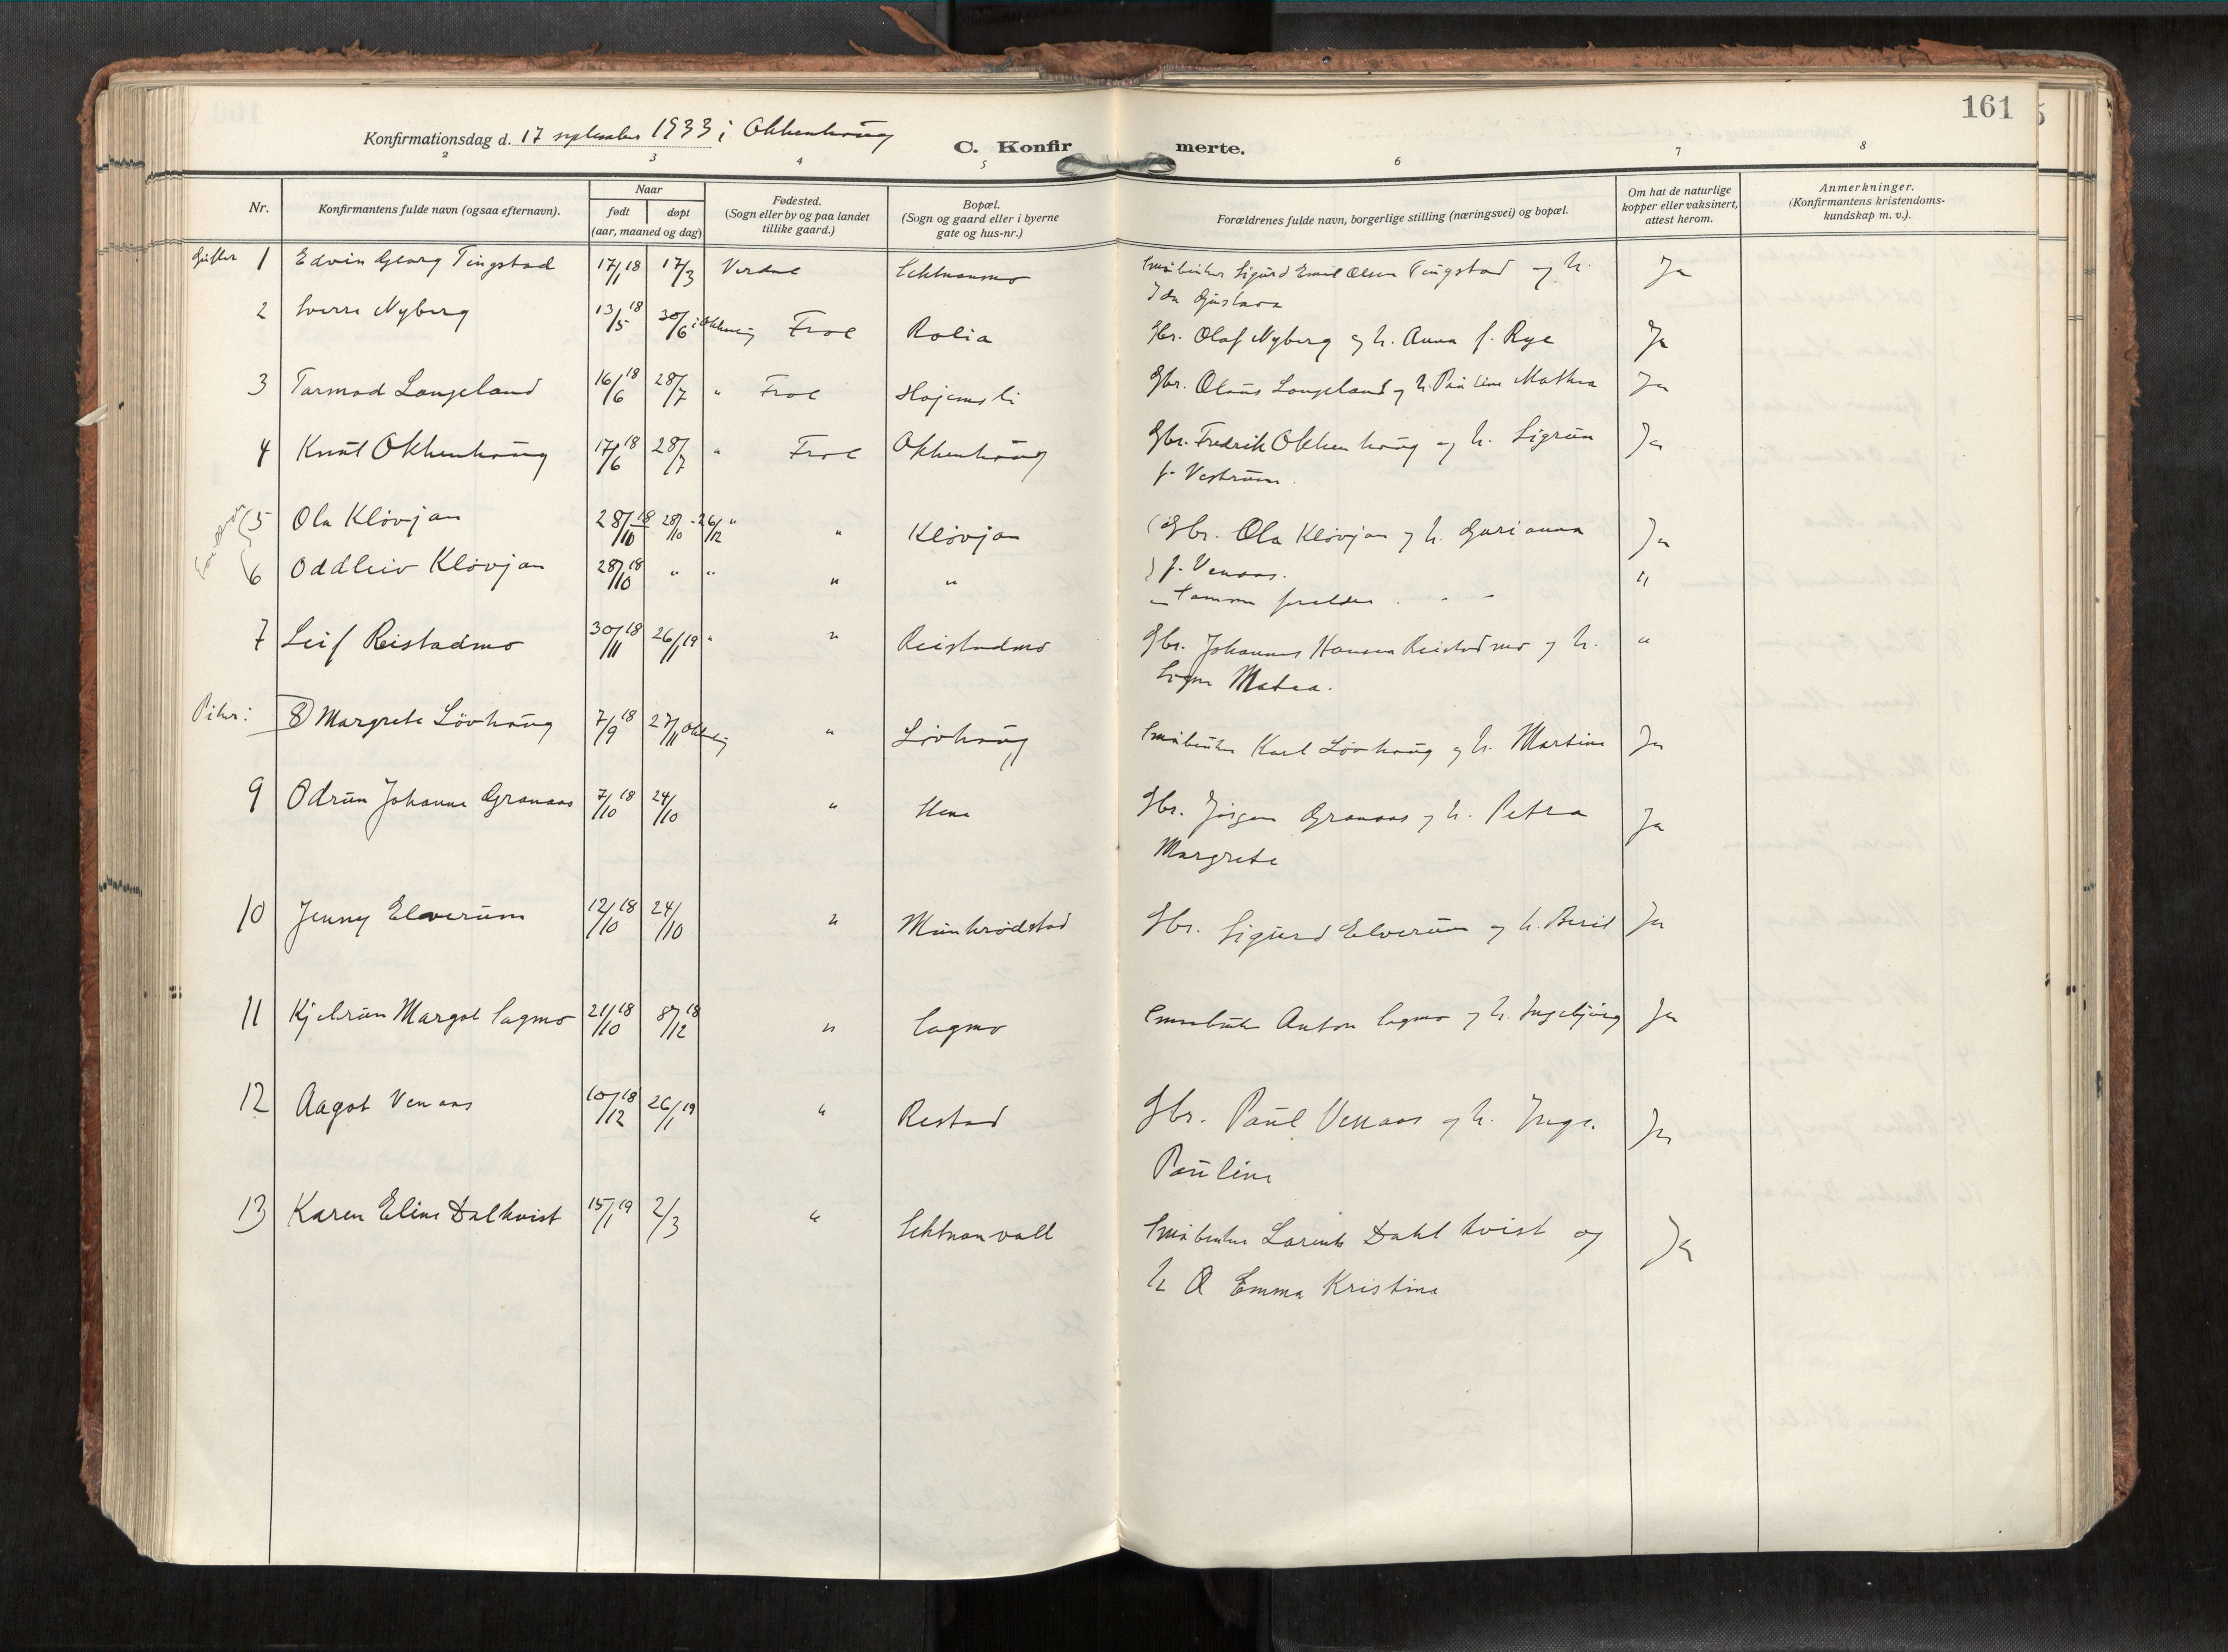 161
Konfirmationsdag d. 17 september 1933 i Okkenhaug
C. Konfirmerte.
2 3 4 5 6 7 8
Nr.
Konfirmantens fulde navn (ogsaa efternavn).
Naar
født døpt
(aar, maaned og dag)
Fødested.
(Sogn eller by og paa landet
tillike gaard.)
Bopæl.
(Sogn og gaard eller i byerne
gate og hus-nr.)
Forældrenes fulde navn, borgerlige stilling (næringsvei) og bopæl.
Om hat de naturlige
kopper eller vaksinert,
attest herom.
Anmerkninger.
(Konfirmantens kristendoms-
kundskap m. v.).
Gutter 1 Edvin Georg Tingstad 17/1 18 17/3 Verdal Sektnanmo Småbruker Sigurd Emil Olsen Tingstad og h. Ja
Ida Gustava
2 Sverre Nyberg 13/5 18 30/6 i Okkenhaug Frol Rolia Gbr. Olaf Nyberg og h. Anna f. Rye Ja
3 Tormod Langeland 16/6 18 28/7 " Frol Hojemsli Gbr. Olaus Langeland og h. Pauline Mathea Ja
4 Knut Okkenhaug 17/6 18 28/7 " Frol Okkenhaug Gbr. Fredrik Okkenhaug og h. Sigrun Ja
f. Vestrum.
5 Ola Klövjan 28/10 18 28/10 - 26/12 " " Klövjan Gbr. Ola Klövjan og h. Gurianna Ja
6 Oddleiv Klövjan 28/10 18 " " " " f. Venaas. "
" Samme forelder . - -
7 Leif Reistadmo 30/11 18 26/1 19 " " Reistadmo Gbr. Johannes Hansen Reistadmo og h. "
Signe Matea.
Piker: 8) Margrete Lövhaug 7/9 18 27/11 Okkenhaug " Lövhaug Småbruker Karl Lövhaug og h. Martine Ja
9 Odrun Johanne Granaas 7/10 18 24/10 " Hene Gbr. Jörgen Granaas og h. Petra Ja
Margrete
10 Jenny Elverum 12/10 18 24/10 " Munkrödstad Gbr. Sigurd Elverum og h. Beril Ja
11 Kjelrun Margot Sagmo 21/10 18 8/12 18 " Sagmo Småbruker Anton Sagmo og h. Ingebjörg Ja
12 Aagot Venaas 10/12 18 26/1 19 " Restad Gbr. Paul Venaas og h. Inga Ja
Pauline
13 Karen Eline Dalkvist 15/1 19 2/3 " Sektnanvald Småbruker Lorents Dahlkvist og Ja
h O Emma Kristina